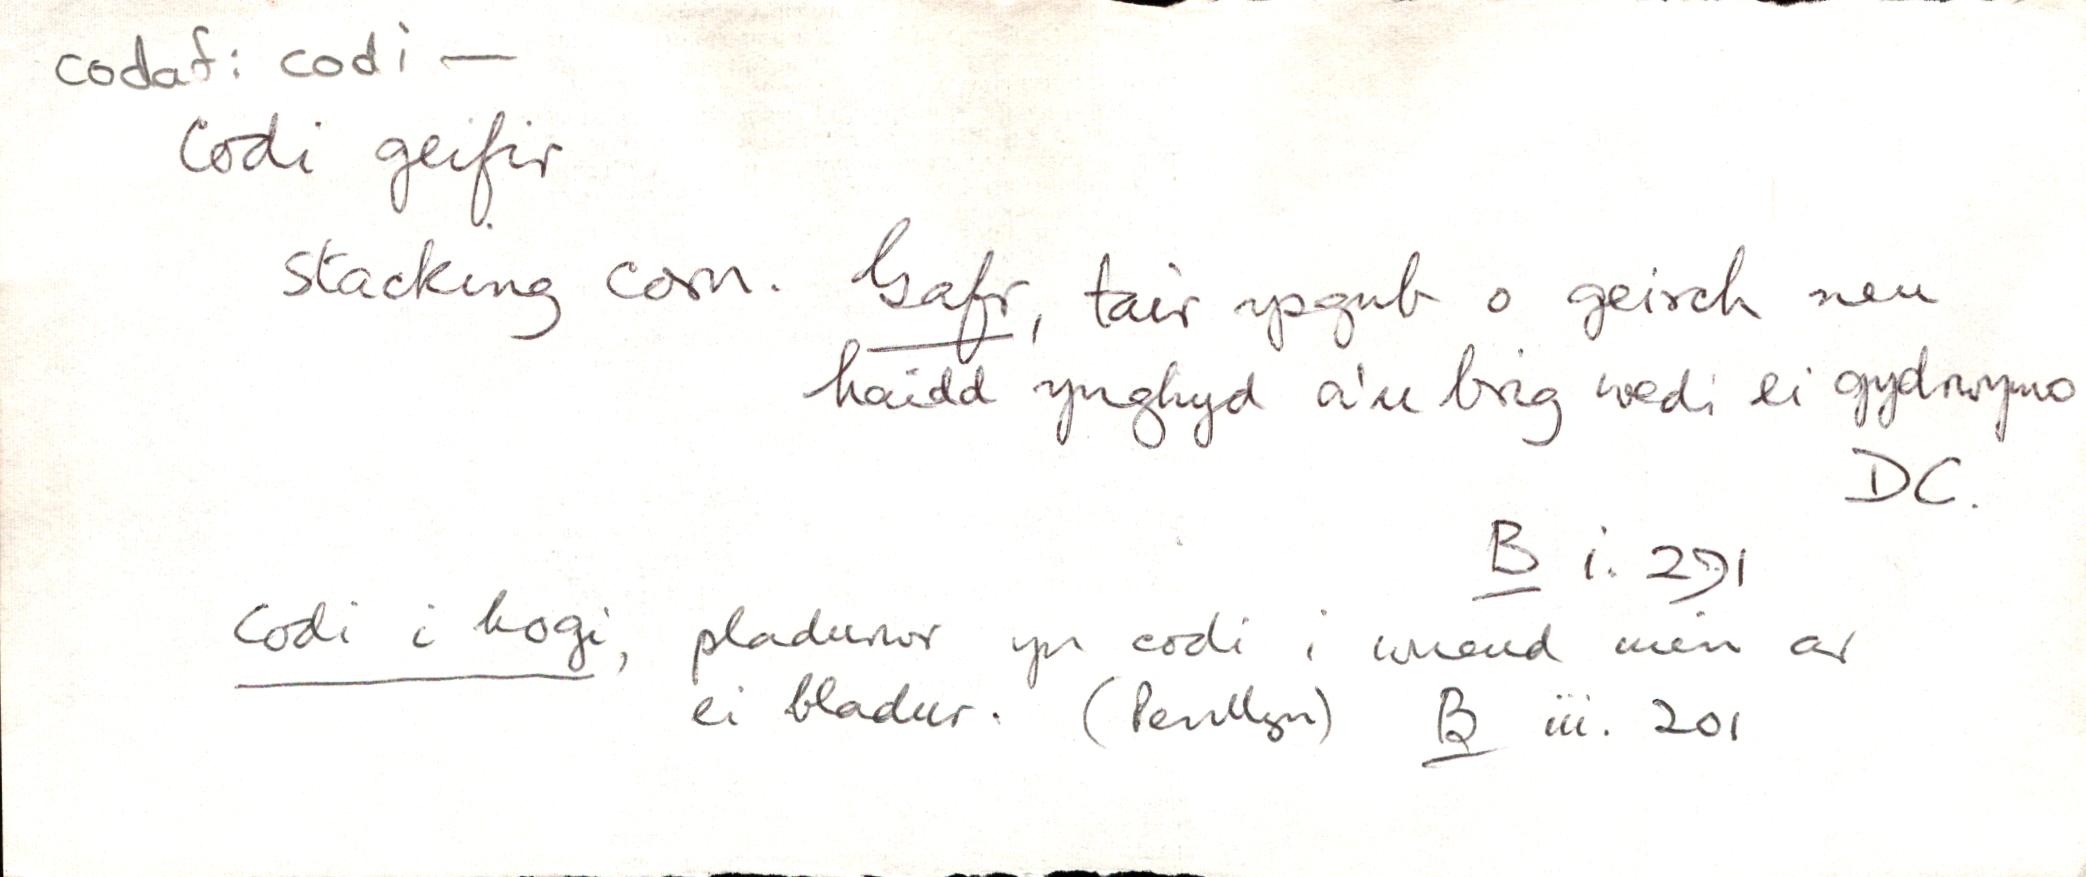 codaf: codi —
Codi geifir
stacking corn. Gafr, tair ysgub o geirch neu
haidd ynghyd a'u brig wedi ei gydrwymo
DC.
B i. 291
Codi i hogi, pladurwr yn codi i wneud min ar
ei bladur. (Penllyn) B iii. 201